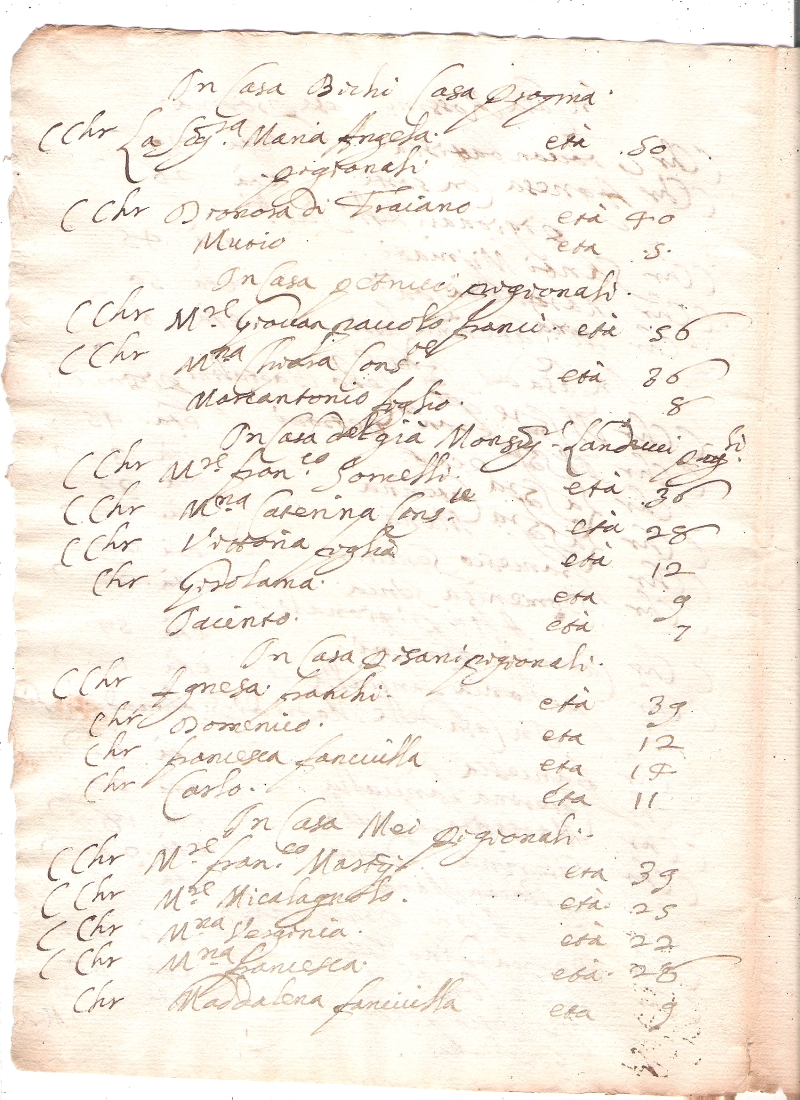 In Casa Bichi Casa propria.
CChr La Sig.ra Maria Angela. età 50
pigionali
CChr Dionora di Traiano età 40
Mutio età 5.
In Casa petrucci pigionali.
CChr M.re Giovanpavolo franci. età 56
CChr M.na Cons.te età 36
Marcantonio figlio. 8
In Casa del già Monsig.r Landucci pig.li
CChr M.re fran.co Gornelli. età 36
CChr M.na Caterina Cons.te età 28
CChr Vittoria figlia età 12
Chr Girolama. età 9
Iacinto. età 7
In Casa pisani pigionali.
CChr Agnesa franchi. età 39
Chr Domenico. età 12
Chr francesca fanciulla età 14
Chr Carlo. età 11
In Casa Mei pigionali.
CChr M.re fran.co Martij età 39
CChr M.re Micalagnolo. età 25
CChr M.na Verginia. età 22
CChr M.na francesca. età 26
Chr Maddalena fanciulla età 9